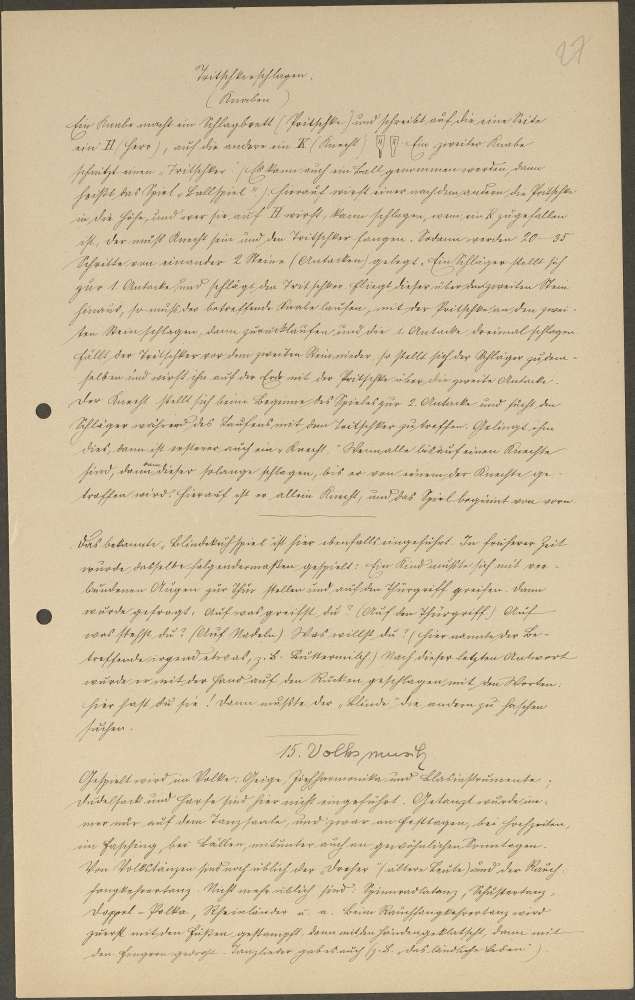 27
Tritschkerschlagen.
(Knaben)
Ein Knabe macht ein Schlagbrett (Pritschke) und schreibt auf die eine Seite
ein H (Herr), auf die andere ein K (Knecht) H K. Ein zweiter Knabe
schnitzt einen „Tritschker" (Es kann auch ein Ball genommen werden, dann
heißt das Spiel „Ballspiel"). Hierauf wirft einer nach dem andern die Pritschke
in die Höhe, und wer sie auf H wirft, kann schlagen, wem ein K zugefallen
ist, der muß Knecht sein und den Tritschker fangen. Sodann werden 20-35
Schritte von einander 2 Steine (Antacken) gelegt. Ein Schläger stellt sich
zur 1 Antacke und schlägt den Tritschker. Fliegt dieser über den zweiten Stein
hinaus, so muß der betreffende Knabe laufen, mit der Pritschke an den zwei-
ten Stein schlagen, dann zurücklaufen und die 1. Antacke dreimal schlagen.
Fällt der Tritschker vor dem zweiten Stein nieder, so stellt sich der Schläger zu dem-
selben und wirft ihn auf der Erde mit der Pritschke über die zweite Antacke.
Der Knecht stellt sich beim Beginne des Spieles zur 2. Antacke und sucht den
Schläger während des Laufens mit dem Tritschker zu treffen. Gelingt ihm
dies, dann ist ersterer auch ein „Knecht." Wenn alle bis auf einen Knechte
sind, dann kann dieser solange schlagen, bis er von einem der Knechte ge-
troffen wird. Hierauf ist er allein Knecht, und das Spiel beginnt von vorn.
Das bekannte „Blindekuhspiel" ist hier ebenfalls eingeführt. In früherer Zeit
wurde dasselbe folgendermaßen gespielt: Ein Kind mußte sich mit ver-
bundenen Augen zur Thür stellen und auf den Thürgriff greifen. Dann
wurde gefragt: Auf was greifst du? (Auf den Thürgriff.) Auf
was stehst du? (Auf Nadeln) Was willst du? (Hier nannte der Be-
treffende irgend etwas, z.B. Buttermilch.) Nach dieser letzten Antwort
wurde er mit der Hand auf den Rücken geschlagen mit den Worten:
Hier hast du sie! Dann mußte der „Blinde" die andern zu haschen
suchen.
15. Volksmusik
Gespielt wird im Volke: Geige, Ziehharmonika und Blasinstrumente;
Dudelsack und Harfe sind hier nicht eingeführt. Getanzt wurde im-
mer nur auf dem Tanzsaale, und zwar an Festtagen, bei Hochzeiten,
im Fasching, bei Bällen, mitunter auch an gewöhnlichen Sonntagen.
Von Volkstänzen sind noch üblich der „Dreher" (ältere Leute) und der Rauch-
fangkehrertanz. Nicht mehr üblich sind: Spinnradlatanz, Schustertanz,
Doppel-Polka, Rheinländer u. a. Beim Rauchfangkehrertanz wird
zuerst mit den Füßen gestampft, dann mit den Händen geklatscht, dann mit
den Fingern gedroht. Tanzlieder gab es auch (z.B. „Das ländliche Leben")